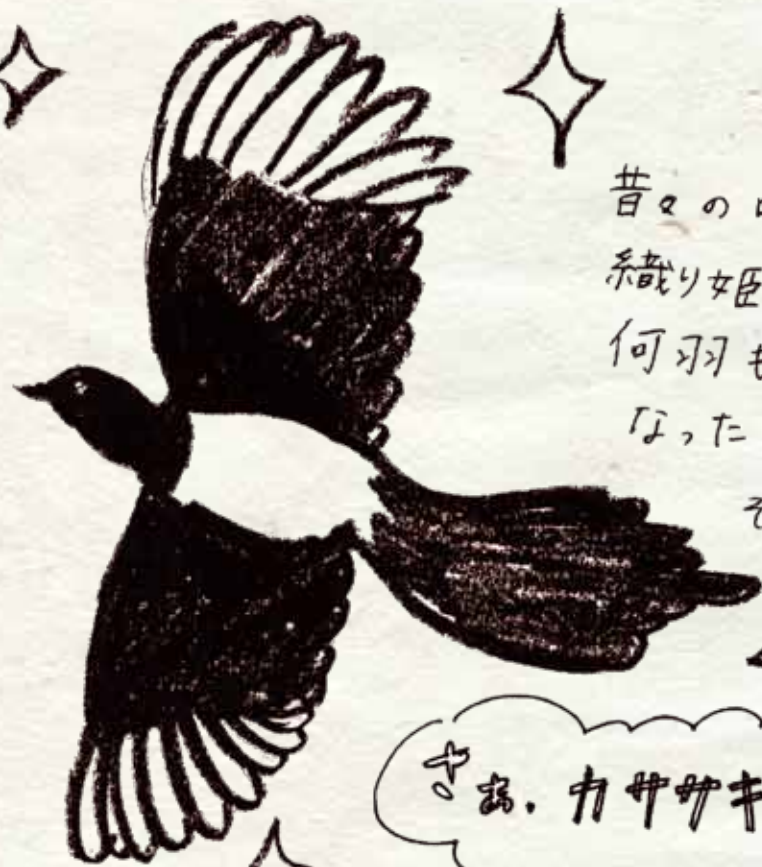 昔々の
織り姫
何羽も
なった
そ
さぁ、カササキ